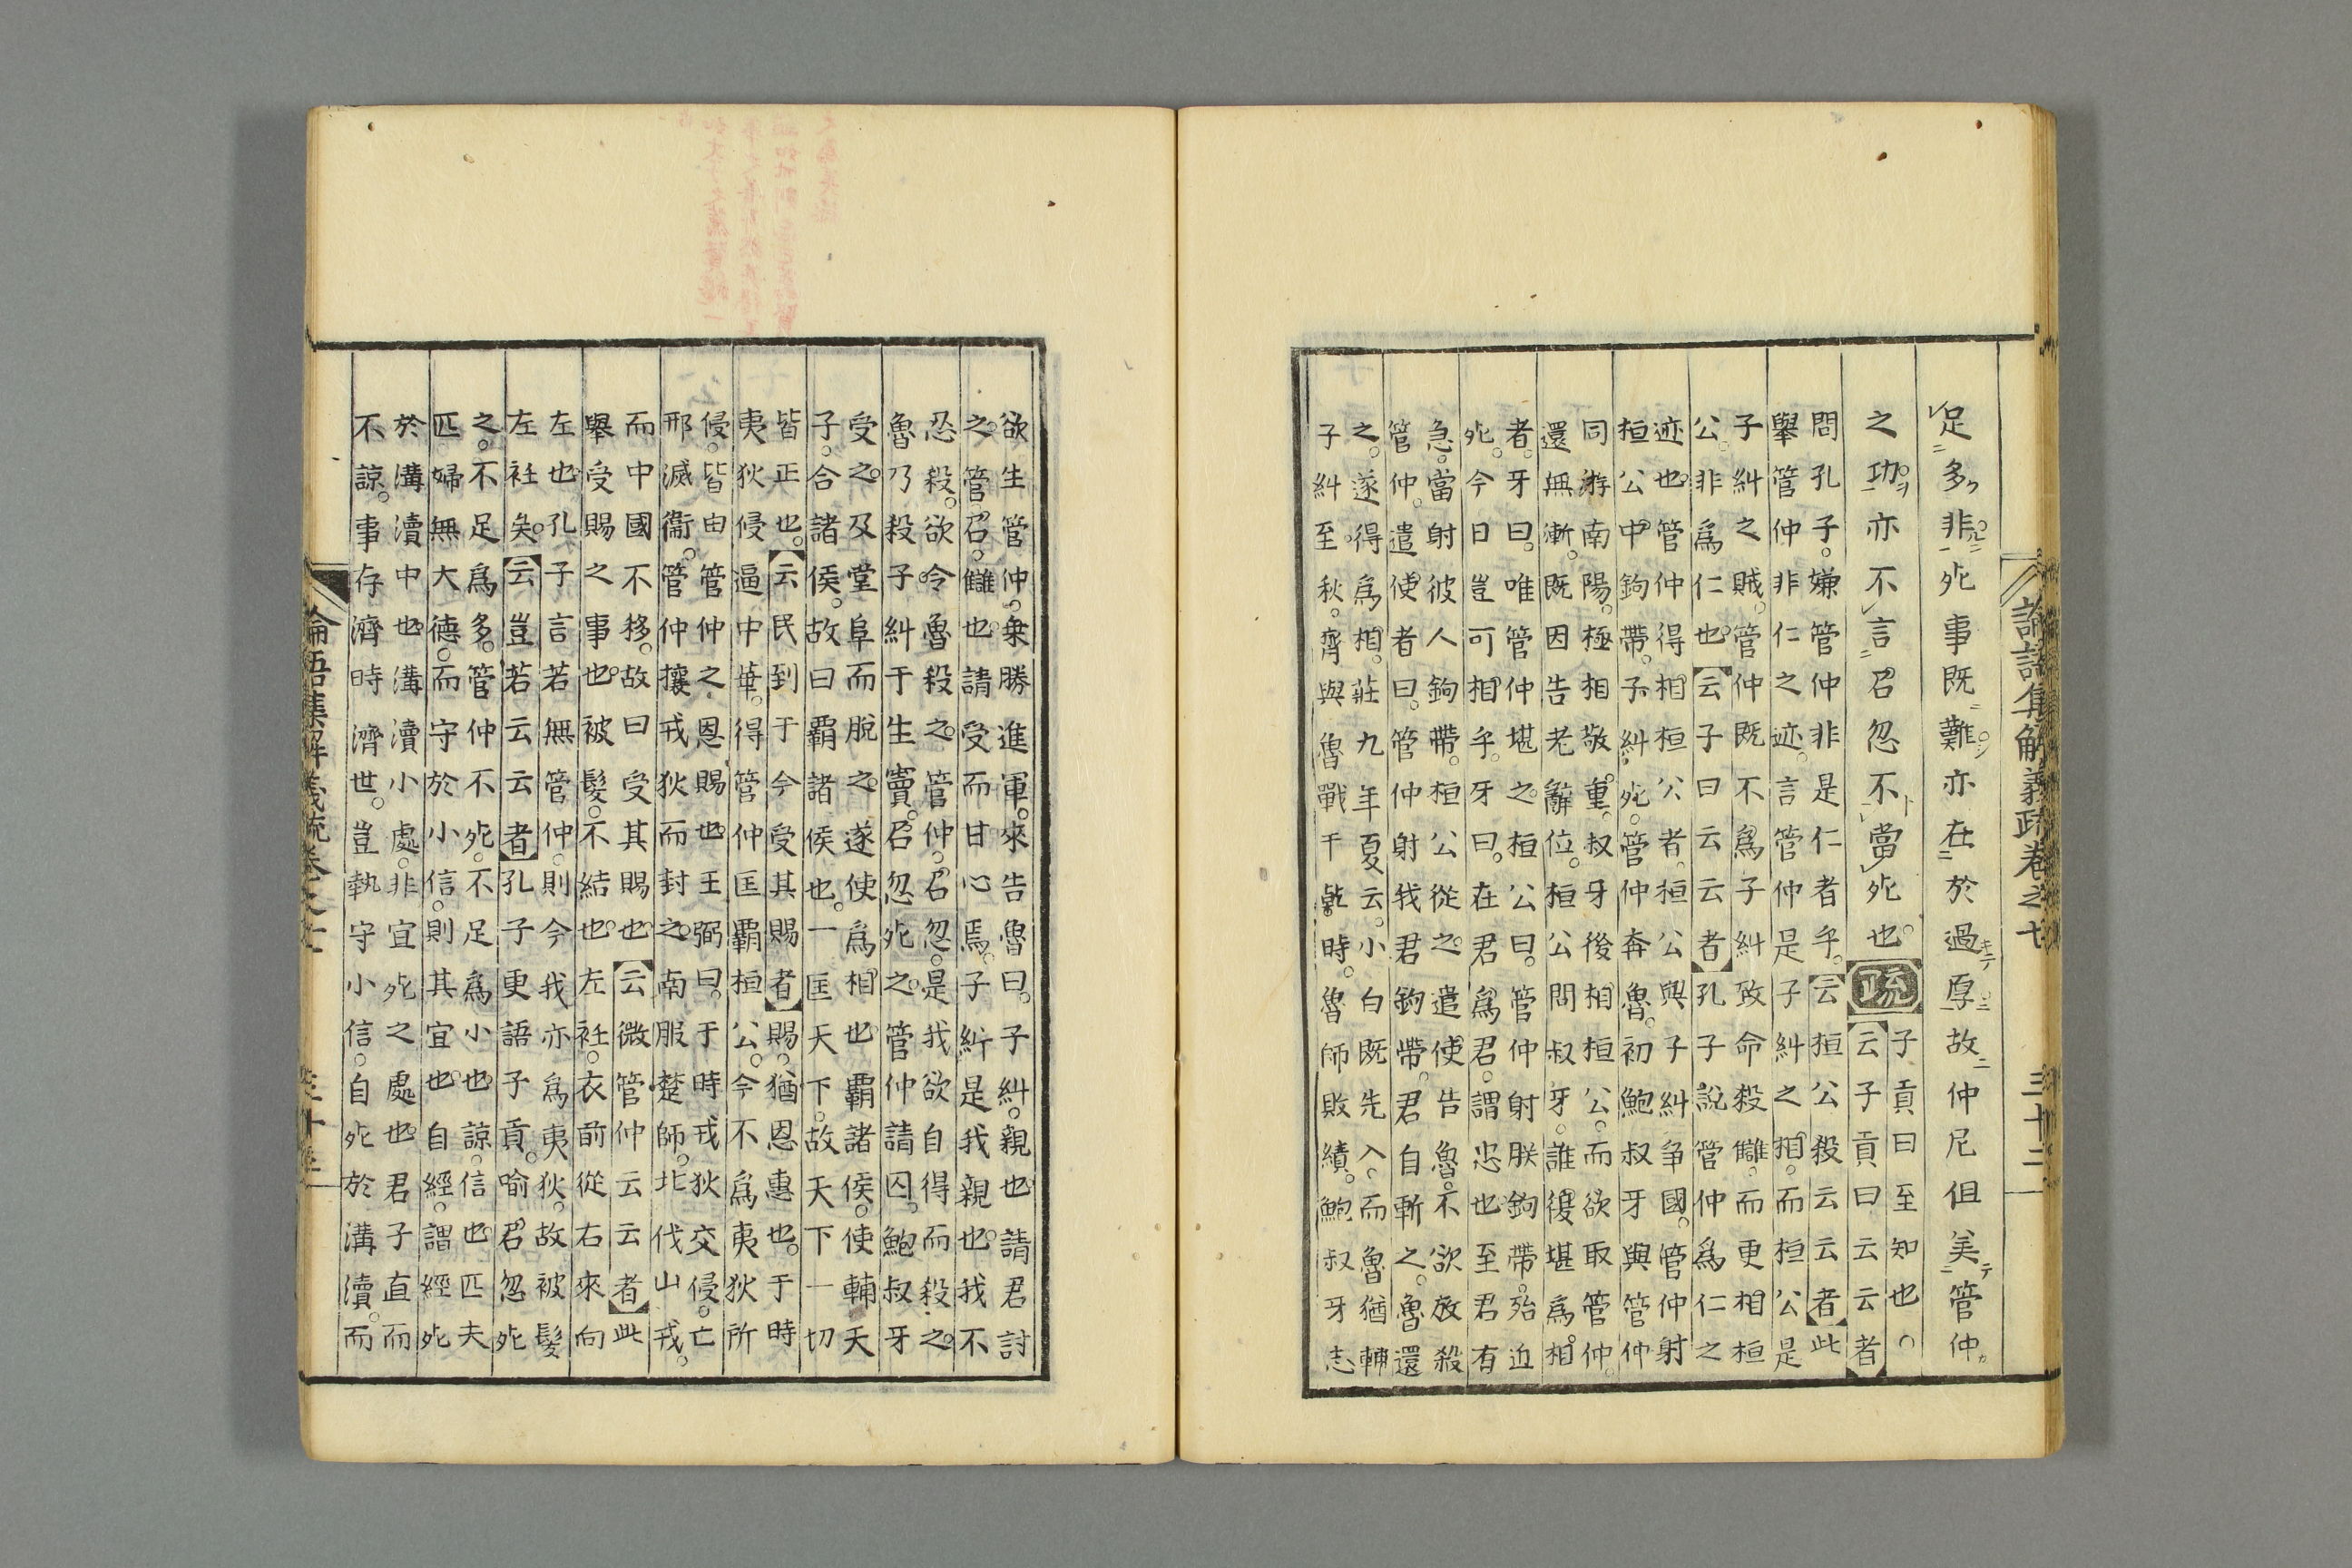 論語集解義疏卷之七
三十二
足多非死事既難亦在於過厚故仲尼但美管仲
之功亦不言召忽不當死也疏
子貢曰至知也
云子貢曰云云者
問孔子嫌管仲非是仁者乎云桓公殺云云者此
舉管仲非仁之迹言管仲是子糾之相而桓公是
子糾之賊管仲既不爲子糾致命殺讎而更相桓
公非爲仁也云子曰云云者孔子說管仲爲仁之
迹也管仲得相桓公者桓公與子糾爭國管仲射
桓公中鉤帶子糾死管仲奔魯初鮑叔牙與管仲
同游南陽極相敬重叔牙後相桓公而欲取管仲
還無漸既因告老辭位桓公問叔牙誰復堪爲相
者牙曰唯管仲堪之桓公曰管仲射朕鉤帶殆近
死今日豈可相乎牙曰在君爲君謂忠也至君有
急當射彼人鉤帶桓公從之遣使告魯不欲放殺
管仲遣使者曰管仲射我君鉤帶君自斬之魯還
之遂得爲相莊九年夏云小白既先入而魯猶輔
子糾至秋齊與魯戰干乾時魯師敗績鮑叔牙志
欲生管仲乗勝進軍來告魯曰子糾親也請君討
之管召讎也請受而甘心焉子糾是我親也我不
忍殺欲令魯殺之管仲召忽是我欲自得而殺之
魯乃殺子糾于生竇召忽死之管仲請囚鮑叔牙
受之及堂阜而脫之遂使爲相也霸諸侯使輔天
子合諸侯故曰霸諸侯也一匡天下故天下一切
皆正也云民到于今受其賜者賜猶恩惠也于時
夷狄侵逼中華得管仲匡霸桓公今不爲夷狄所
侵皆由管仲之恩賜也王弼曰于時戎狄交侵亡
邢滅衞管仲攘戎狄而封之南服楚師北伐山戎
而中國不移故曰受其賜也云微管仲云云者此
舉受賜之事也被髮不結也左衽衣前從右來向
左也孔子言若無管仲則今我亦爲夷狄故被髮
左衽矣云豈若云云者孔子更語子貢喻召忽死
之不足爲多管仲不死不足爲小也諒信也匹夫
匹婦無大德而守於小信則其宜也自經謂經死
於溝瀆中也溝瀆小處非宜死之處也君子直而
不諒事存濟時濟世豈執守小信自死於溝瀆而